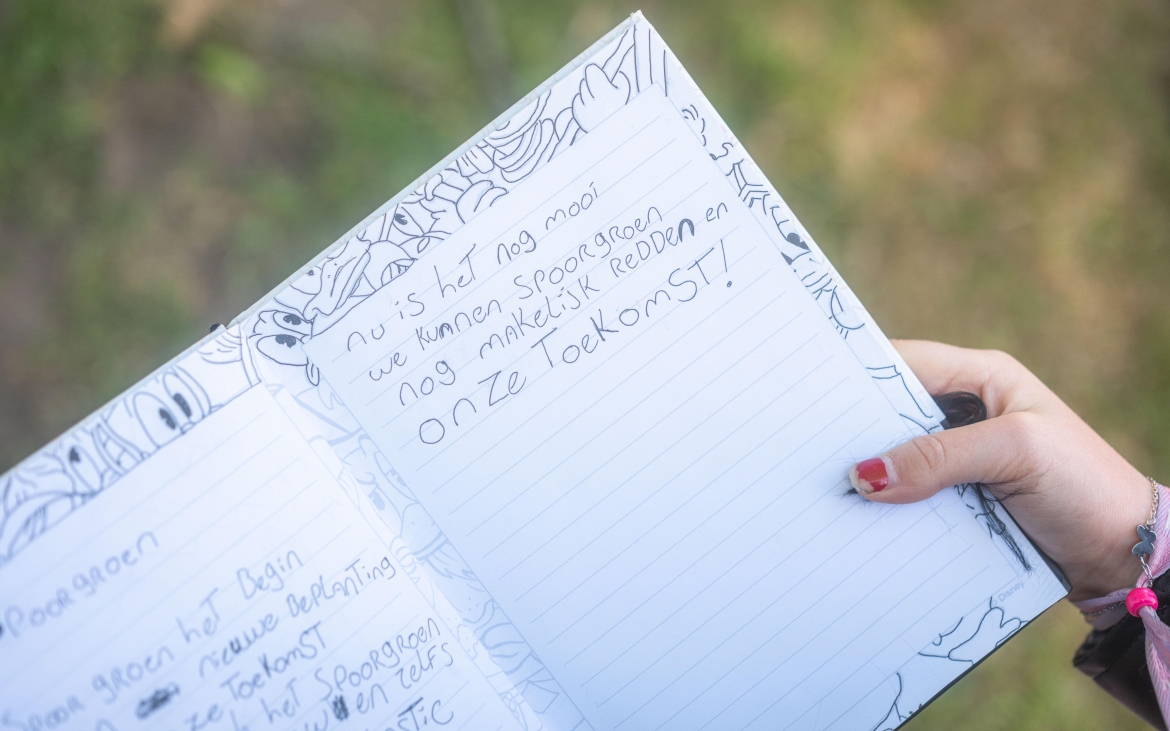 Spoorgroen
Spoor groen het Begin
nieuwe Beplanting
ze Toekomst
het Spoorgroen
en zelfs
nu is het nog mooi
we kunnen Spoorgroen
nog makelijk redden en
onze Toekomst!
© Disney